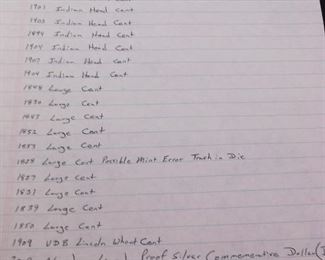 Cent
1901 Indian Head Cent
1903 Indian Head Cent
1894 Indian Head Cent
1904 Indian Head Cent
1907 Indian Head Cent
1904 Indian Head Cent
1848 Large Cent
1830 Large Cent
Large Cent
1852 Large Cent
Large Cent
1828 Large Cent Possible Mint Error in Die
1827 Large Cent
1831 Large Cent
1839 Large Cent
1850 Large Cent
1909 VDB Lincoln Wheat Cent
Proof Silver Commemorative Dollar